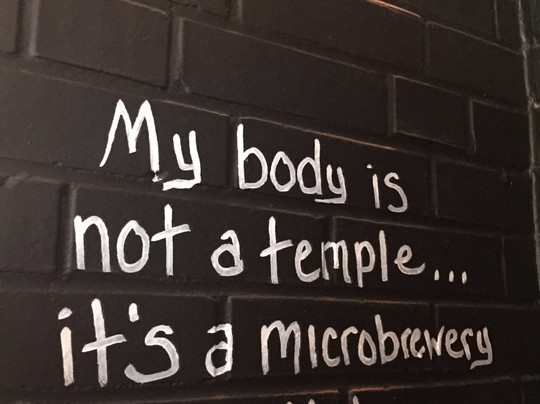 My body is
not a temple...
it's a microbrewery